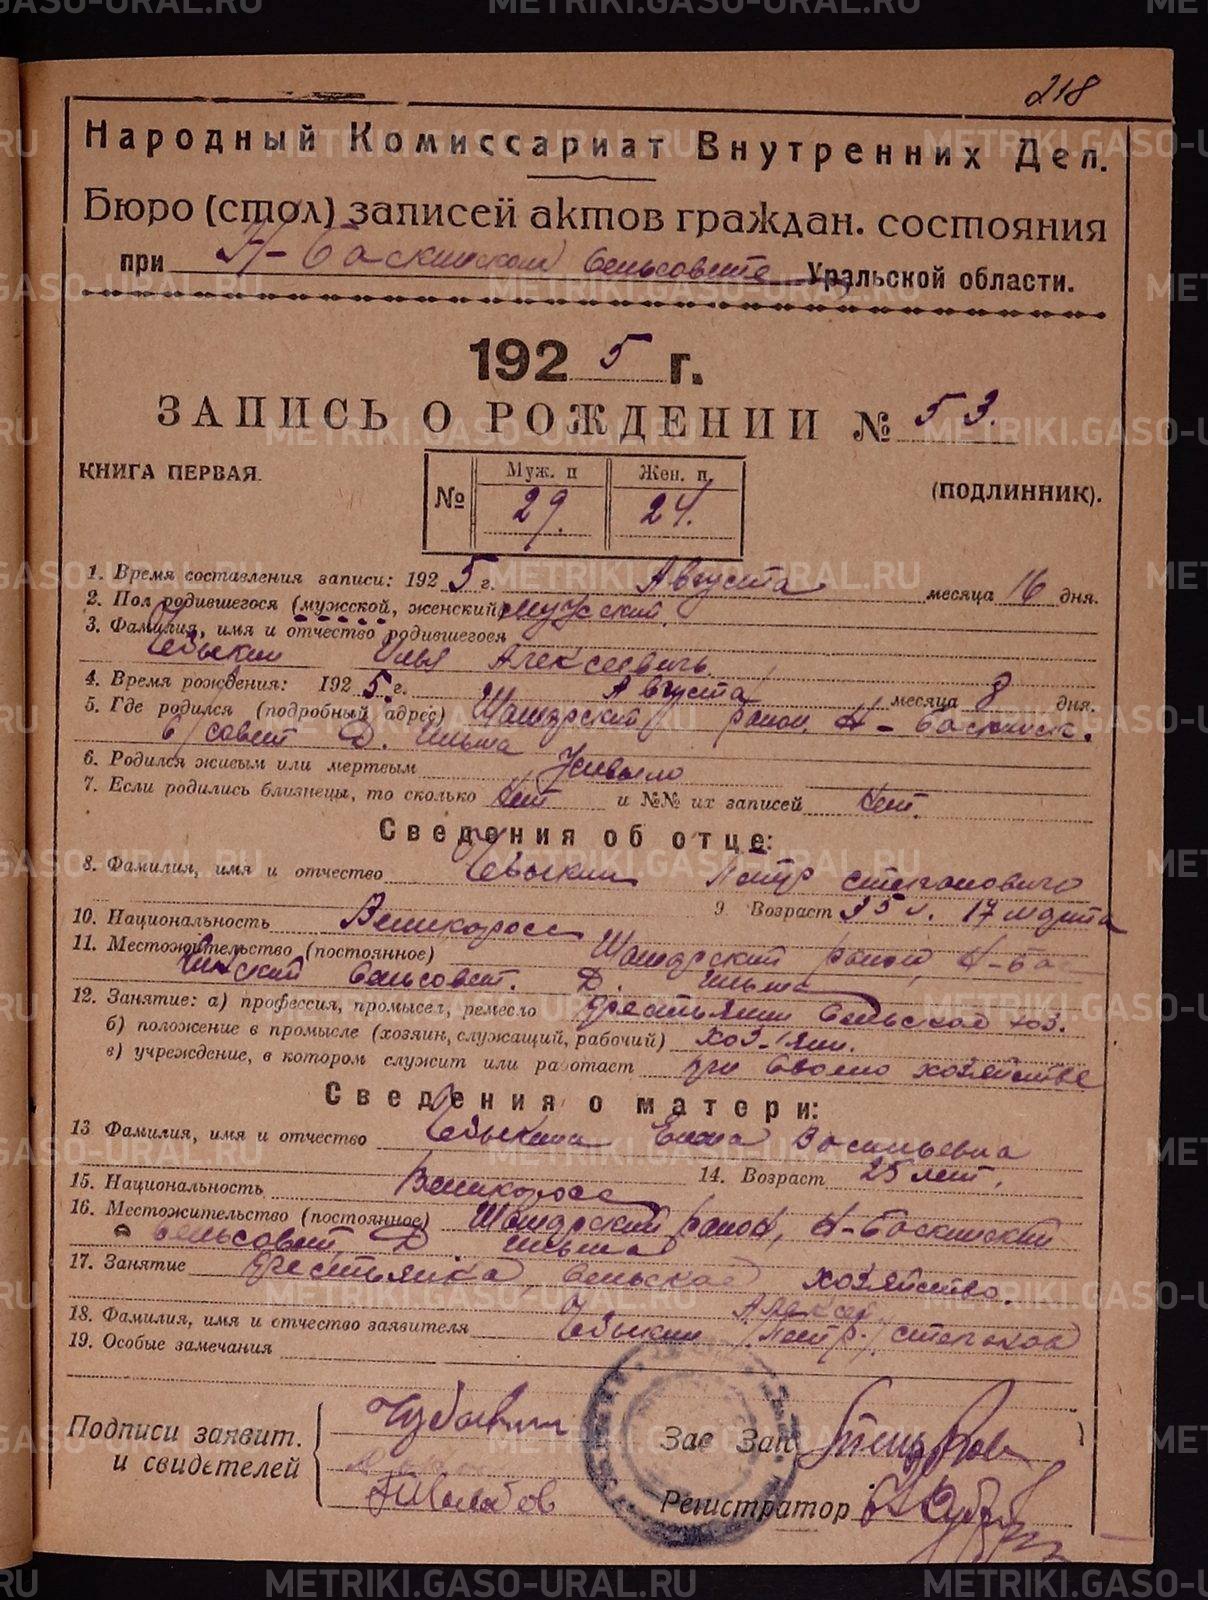 218
Народный Комиссариат Внутренних Дел.
Бюро (стол) записей актов граждан. состояния
при Н-Баскинском сельсовете Уральской области.
1925 г.
ЗАПИСЬ О РОЖДЕНИИ № 53.
КНИГА ПЕРВАЯ.
(ПОДЛИННИК).
№ Муж. п 29. Жен. п. 24.
1. Время составления записи: 1925 г. Августа месяца 16 дня.
2. Пол родившегося (мужской, женский) мужский.
3. Фамилия, имя и отчество родившегося
Чебыкин Илья Алексеевичь
4. Время рождения: 1925 г. Августа месяца 8 дня.
5. Где родился (подробный адрес) Район, Н-Баскинск.
с/совет Д.
6. Родился живым или мертвым Живым
7. Если родились близнецы, то сколько нет и №№ их записей нет.
Сведения об отце:
8. Фамилия, имя и отчество Чебыкин Петр
9. Возраст 35 л. 17 марта
10. Национальность Великоросс
11. Местожительство (постоянное) район, Н-Бас
сельсовет. Д.
12. Занятие: а) профессия, промысел, ремесло крестьянин сельское хоз.
б) положение в промысле (хозяин, служащий, рабочий) хоз-яин.
в) учреждение, в котором служит или работает при своем хозяйстве
Сведения о матери:
13 Фамилия, имя и отчество Чебыкина Елена Васильевна
14. Возраст 25 лет.
15. Национальность Великоросс
16. Местожительство (постоянное) район, Н-Баскинский
сельсовет Д.
17. Занятие крестьянка сельское хозяйство.
Алексей
18. Фамилия, имя и отчество заявителя Чебыкин /Петр/
19. Особые замечания
Подписи заявит.
и свидетелей
Зав Зап
Регистратор
METRIKI.GASO-URAL.RU